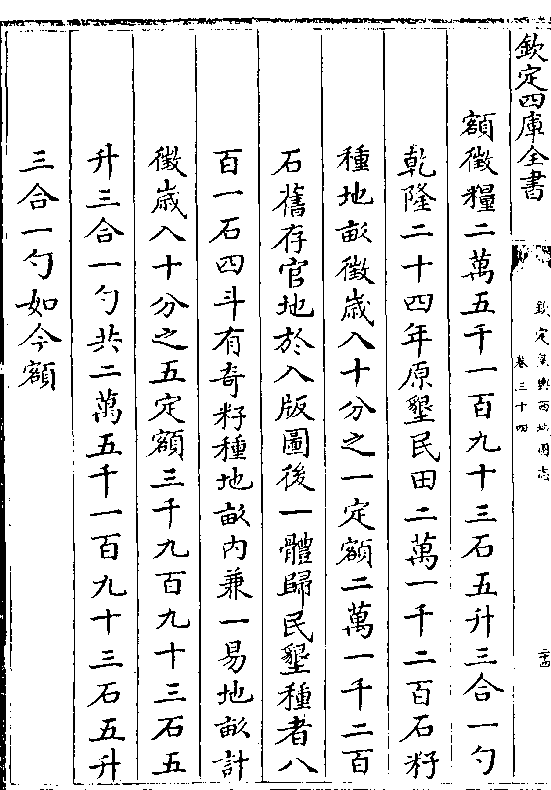 欽定四庫全書
欽定皇輿西域圖志
卷三十四
二十四
額徵糧二萬五千一百九十三石五升三合一勺
乾隆二十四年原墾民田二萬一千二百石籽
種地畝徵歲入十分之一定額二萬一千二百
石舊存官地於入版圖後一體歸民墾種者八
百一石四斗有奇籽種地畝内兼一易地畝計
徵歲入十分之五定額三千九百九十三石五
升三合一勺共二萬五千一百九十三石五升
三合一勺如今額